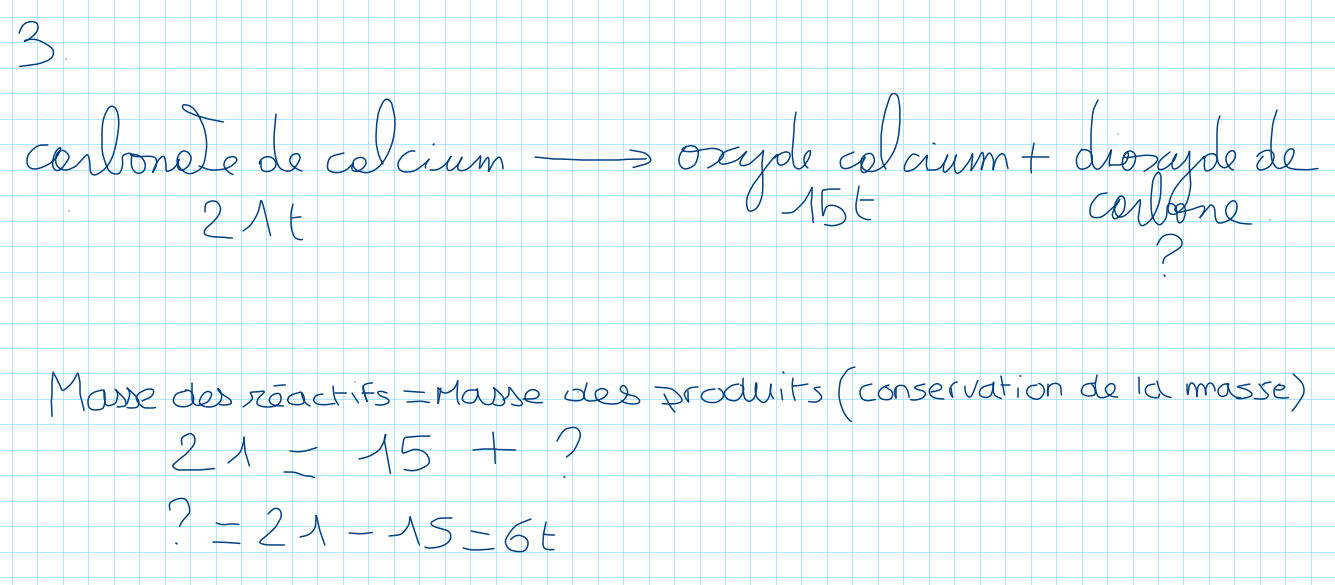 3.
carbonate de calcium → oxyde calcium + dioxyde de
carbone
21t 15t ?
Masse des réactifs = Masse des produits (conservation de la masse)
21 = 15 + ?
? = 21 - 15 = 6t